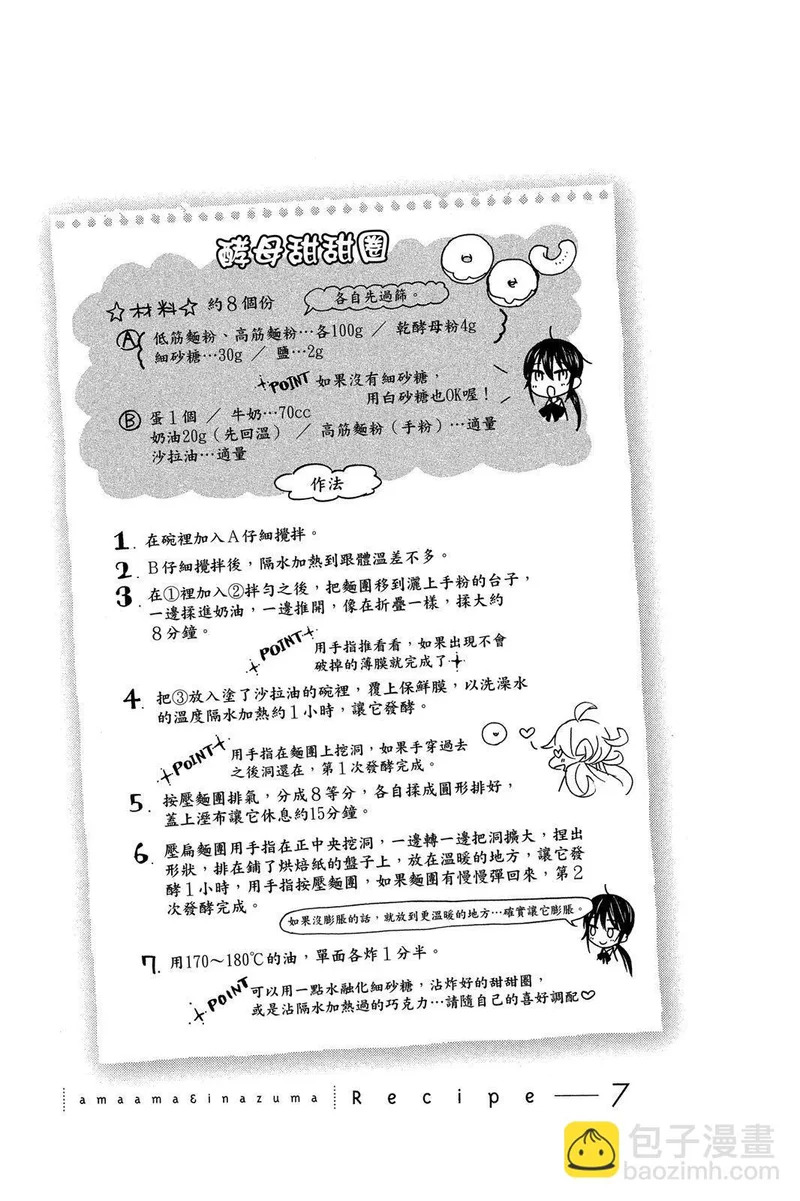 酵母甜甜圈
☆材料☆ 約8個份
各自先過篩。
Ⓐ 低筋麵粉、高筋麵粉…各100g ／ 乾酵母粉4g
細砂糖…30g ／ 鹽…2g
POINT 如果沒有細砂糖，
用白砂糖也OK喔！
Ⓑ 蛋1個 ／ 牛奶…70cc
奶油20g（先回溫） ／ 高筋麵粉（手粉）…適量
沙拉油…適量
作法
1. 在碗裡加入A仔細攪拌。
2. B仔細攪拌後，隔水加熱到跟體溫差不多。
3. 在①裡加入②拌勻之後，把麵團移到灑上手粉的台子，
一邊揉進奶油，一邊推開，像在折疊一樣，揉大約
8分鐘。
POINT 用手指推看看，如果出現不會
破掉的薄膜就完成了
4. 把③放入塗了沙拉油的碗裡，覆上保鮮膜，以洗澡水
的溫度隔水加熱約1小時，讓它發酵。
POINT 用手指在麵團上挖洞，如果手穿過去
之後洞還在，第1次發酵完成。
5. 按壓麵團排氣，分成8等分，各自揉成圓形排好，
蓋上溼布讓它休息約15分鐘。
6. 壓扁麵團用手指在正中央挖洞，一邊轉一邊把洞擴大，捏出
形狀，排在鋪了烘焙紙的盤子上，放在溫暖的地方，讓它發
酵1小時，用手指按壓麵團，如果麵團有慢慢彈回來，第2
次發酵完成。
如果沒膨脹的話，就放到更溫暖的地方…確實讓它膨脹。
7. 用170～180℃的油，單面各炸1分半。
POINT 可以用一點水融化細砂糖，沾炸好的甜甜圈，
或是沾隔水加熱過的巧克力…請隨自己的喜好調配♡
amaama&inazuma Recipe — 7
包子漫畫
baozimh.com